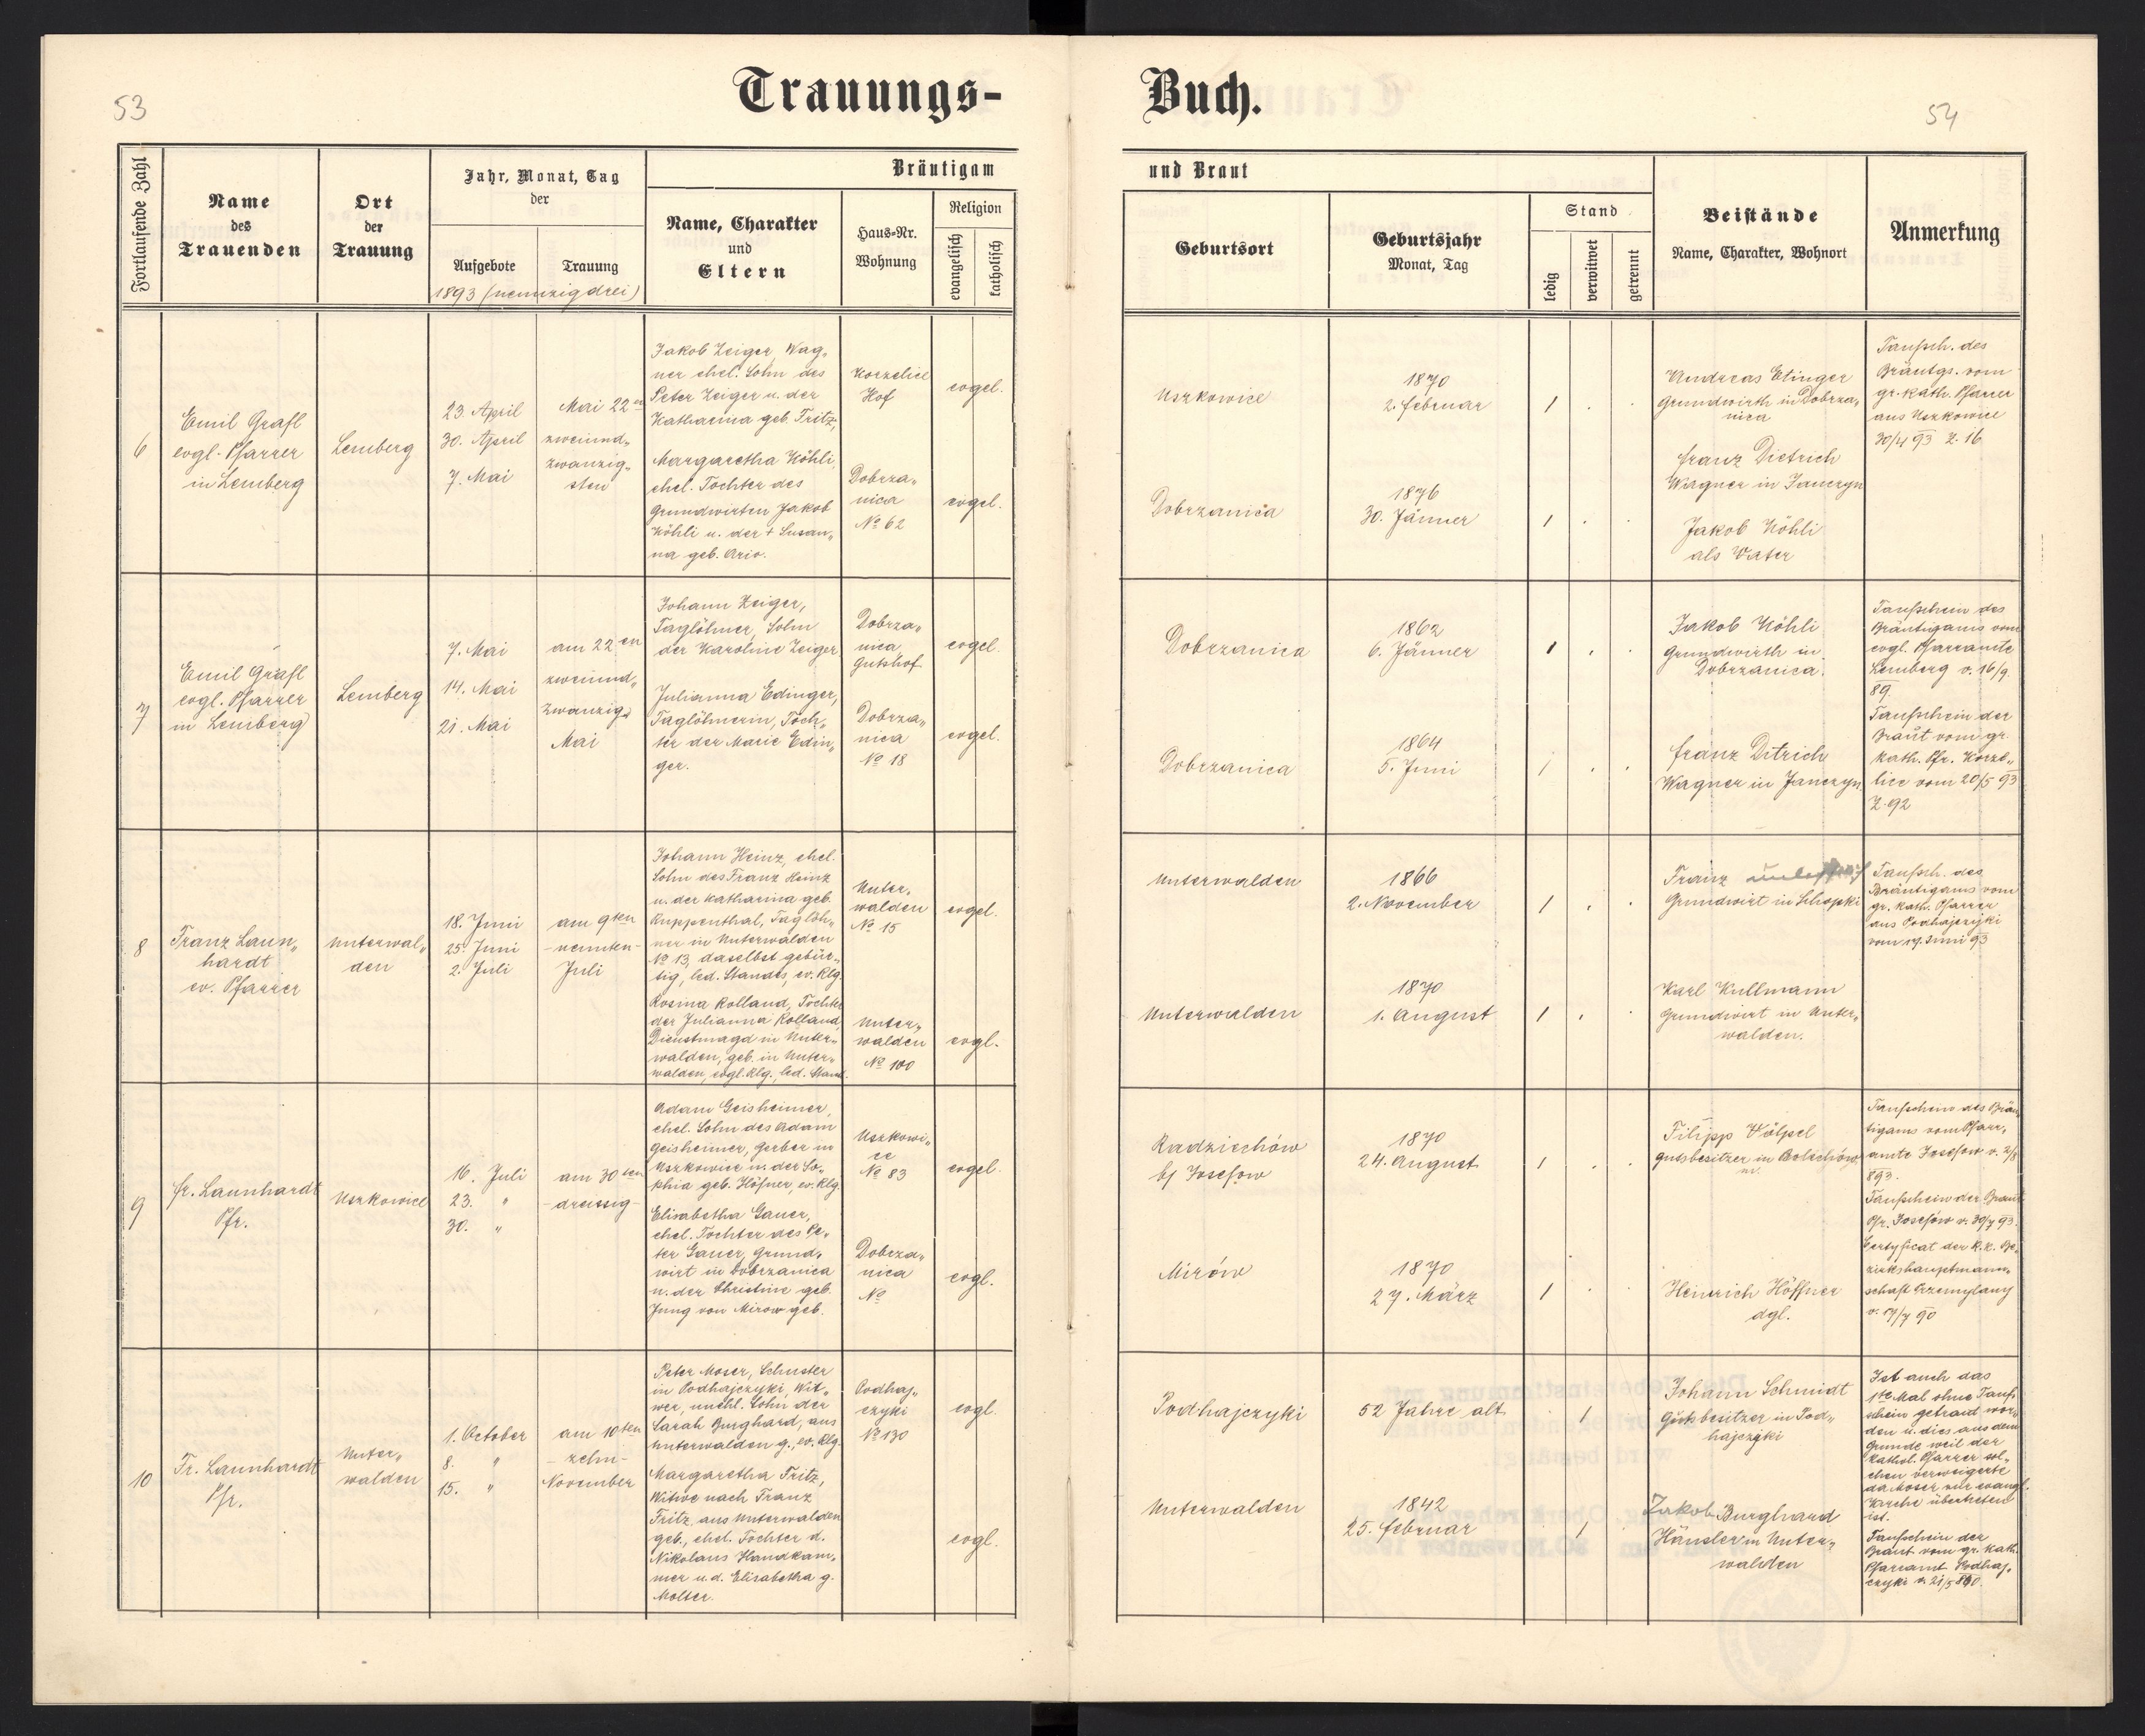 53
Trauungs-
Buch.
54
Fortlaufende Zahl
Name
des
Trauenden
Ort
der
Trauung
Jahr, Monat, Tag
der
Aufgebote
Trauung
1893 (neunzigdrei)
Bräutigam
Name, Charakter
und
Eltern
Haus-Nr.
Wohnung
Religion
evangelisch
katholisch
und Braut
Geburtsort
Geburtsjahr
Monat, Tag
Stand
ledig
verwitwet
getrennt
Beistände
Name, Charakter, Wohnort
Anmerkung
6
Emil Grafl
evgl. Pfarrer
in Lemberg
Lemberg
23. April
30. April
7. Mai
Mai 22en
zweiund„
zwanzig„
sten
Jakob Zeiger, Wag„
ner ehel. Sohn des
Peter Zeiger u. der
Katharina geb. Fritz,
Margaretha Köhli,
ehel. Tochter des
Grundwirten Jakob
Köhli u. der + Susan„
na geb. Ario.
Korzelice
Hof
Dobrza„
nica
No 62
evgel.
evgel.
Uszkowice
Dobrzanica
1870
2. Februar
1876
30. Jänner
1 . .
1 . .
Andreas Etinger
Grundwirth in Dobrza„
nica
Franz Dietrich
Wagner in Janczyn
Jakob Köhli
als Vater
Taufsch. des
Bräutgs. vom
gr. kath. Pfarrer
aus Uszkowice
30/4 93 Z. 16
7
Emil Grafl
evgl. Pfarrer
in Lemberg
Lemberg
7. Mai
14. Mai
21. Mai
am 22en
zweiund„
zwanzig„
Mai
Johann Zeiger,
Taglöhner, Sohn
der Karoline Zeiger
Julianna Edinger,
Taglöhnerin, Toch„
ter der Marie Edin„
ger.
Dobrza„
nica
Gutshof
Dobrza„
nica
No 18
evgel.
evgel.
Dobrzanica
Dobrzanica
1862
6. Jänner
1864
5. Juni
1 . .
1 . .
Jakob Köhli
Grundwirth in
Dobrzanica.
Franz Ditrich
Wagner in Janczyn
Taufschein des
Bräutigams vom
evgl. Pfarramte
Lemberg v. 16/9
89.
Taufschein der
Braut vom gr.
kath. Pfr. Korze„
lice vom 20/5 93
Z. 92
8
Franz Laun„
hardt
ev. Pfarrer
Unterwal„
den
18. Juni
25. Juni
2. Juli
am 9ten
-neunten-
Juli
Johann Heinz, ehel.
Sohn des Franz Heinz
u. der Katharina geb.
Ruppenthal, Taglöh„
ner in Unterwalden
No 13, daselbst gebür„
tig, led. Standes, ev. Rlg.
Rosina Rolland, Tochter
der Julianna Rolland
Dienstmagd in Unter„
walden, geb. in Unter„
walden, evgl. Rlg., led. Stand.
Unter„
walden
No 15
Unter„
walden
No 100
evgel.
evgl.
Unterwalden
Unterwalden
1866
2. November
1870
1. August
1 . .
1 . .
Franz
Grundwirt in
Karl Kullmann
Grundwirt in Unter„
walden.
Taufsch. des
Bräutigams vom
gr. kath. Pfarrer
aus Podhajczyki
vom 17. Juni 93
9
Fr. Launhardt
Pfr.
Uszkowice
16. Juli
23. "
30. "
am 30ten
-dreissig-
Adam Geisheimer,
ehel. Sohn des Adam
Geisheimer, Gerber in
Uszkowice u. der So„
phia geb. Höfner, ev. Rlg.
Elisabetha Gauer,
ehel. Tochter des Pe„
ter Gauer, Grund„
wirt in Dobrzanica
u. der Christine geb.
Jung von Mirow geb.
Uszkowi„
ce
No 83
Dobrza„
nica
No
evgel.
evgl.
Radziechów
bj Josefow
Mirów
1870
24. August
1870
27. März
1 . .
1 . .
Filipp Völpel
Gutsbesitzer in
Heinrich Höffner
dgl.
Taufschein des Bräu„
tigams vom Pfarr„
amte Josefow v. 2/8
893.
Taufschein der Braut
Pfr. Josefów v. 30/7 93.
Certyficat der k.k. Be„
zirkshauptmann„
schaft Przemyslany
v. 19/7 90
10
Fr. Launhardt
Pfr.
Unter„
walden
1. October
8. "
15. "
am 10ten
- zehn -
November
Peter Moser, Schuster
in Podhajczyki, Wit„
wer, unehl. Sohn der
Sarah Burghard, aus
Unterwalden g., ev. Rlg.
Margaretha Fritz,
Witwe nach Franz
Fritz aus Unterwalden
geb., ehel. Tochter d.
Nikolaus Handkam„
mer u. d. Elisabetha g.
Molter.
Podhaj„
czyki
No 130
evgl
evgl.
Podhajczyki
Unterwalden
52 Jahre alt
1842
25. Februar
. 1 .
. 1 .
Johann Schmidt
Gutsbesitzer in Pod„
hajczyki
Jakob Burghard
Häusler in Unter„
walden
Ist auch das
1te Mal ohne Tauf„
schein getraut wor„
den u. dies aus dem
Grunde weil der
kathol. Pfarrer sol„
chen verweigerte
da Moser zur evangl.
Kirche übertreten
ist.
Taufschein der
Braut vom gr. kath.
Pfarramt Podhaj„
czyki v. 21/5 890.